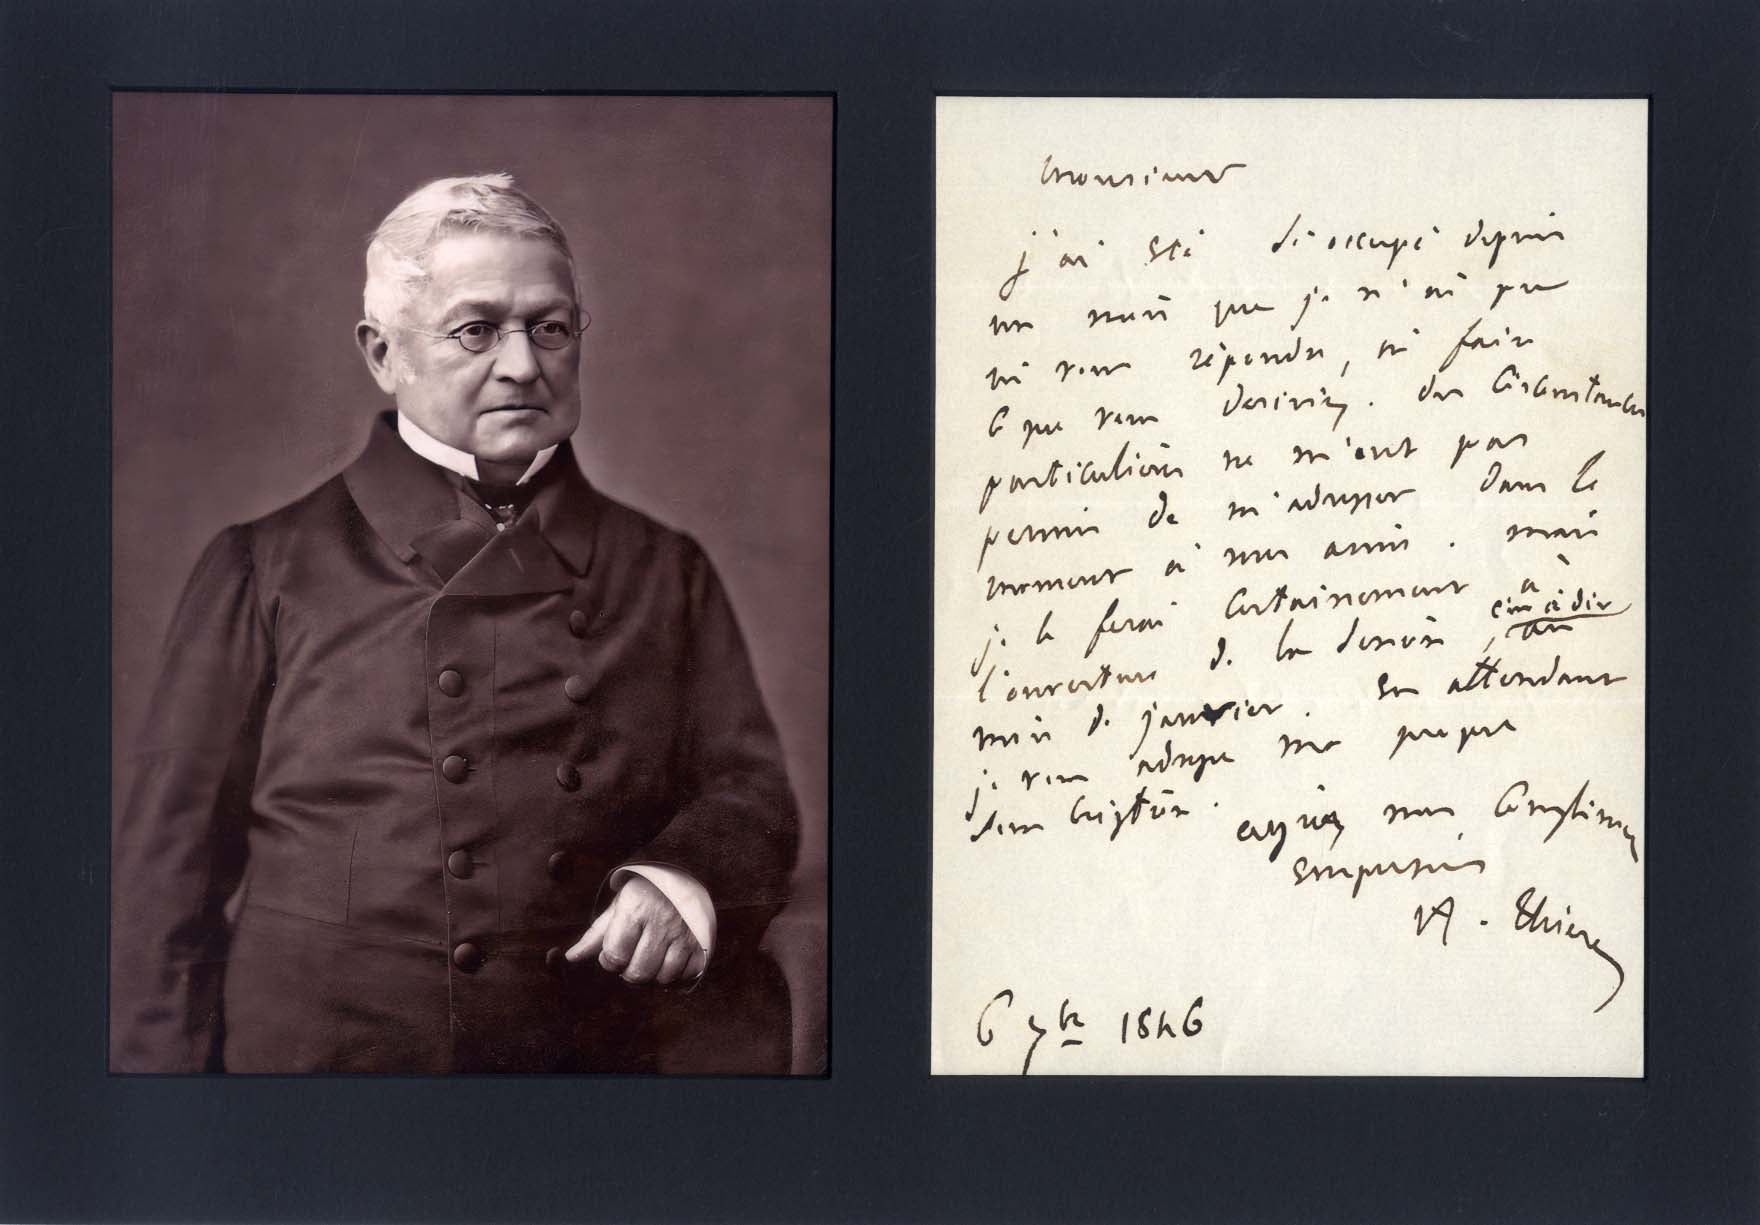 Monsieur
j'ai été si occupé depuis
un mois que je n'ai pu
ni vous répondre, ni faire
ce que vous desiriez. des circonstances
particulieres ne m'ont pas
permis de m'adresser dans le
moment à mes amis. mais
je le ferai certainement à
l'ouverture de la session, c'est à dire au
mois de janvier. En attendant
je vous adresse ma propre
souscription. agréez mes complimens
empressés
A. Thiers
6 9bre 1846